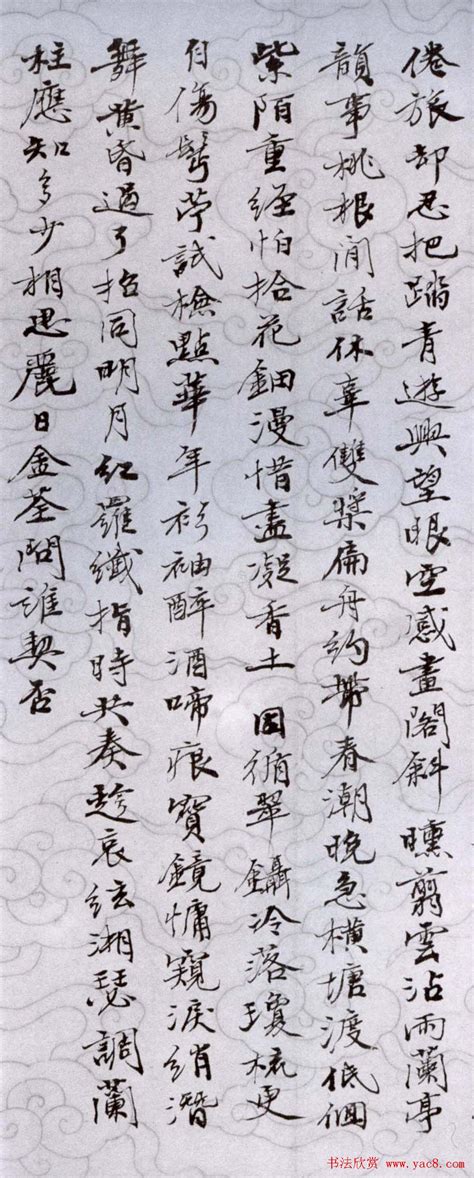 倦旅却忍把踏青遊興望眼空感畫閣斜曛剪雲沾雨蘭亭
韻事桃根閒話休辜雙槳扁舟約帶春潮晚急橫塘渡低佪
紫陌重經怕拾花鈿漫惜盡凝香土 因循翠鑷冷落瓊梳更
自傷鬢苧試撫點華年衫袖醉酒啼痕寶鏡慵窺淚綃潛
舞黄昏過了招同明月紅羅纖指時共奏趁哀絃湘瑟調蘭
柱應知多少相思麗日金荃問誰契否
书法欣赏 www.yac8.com